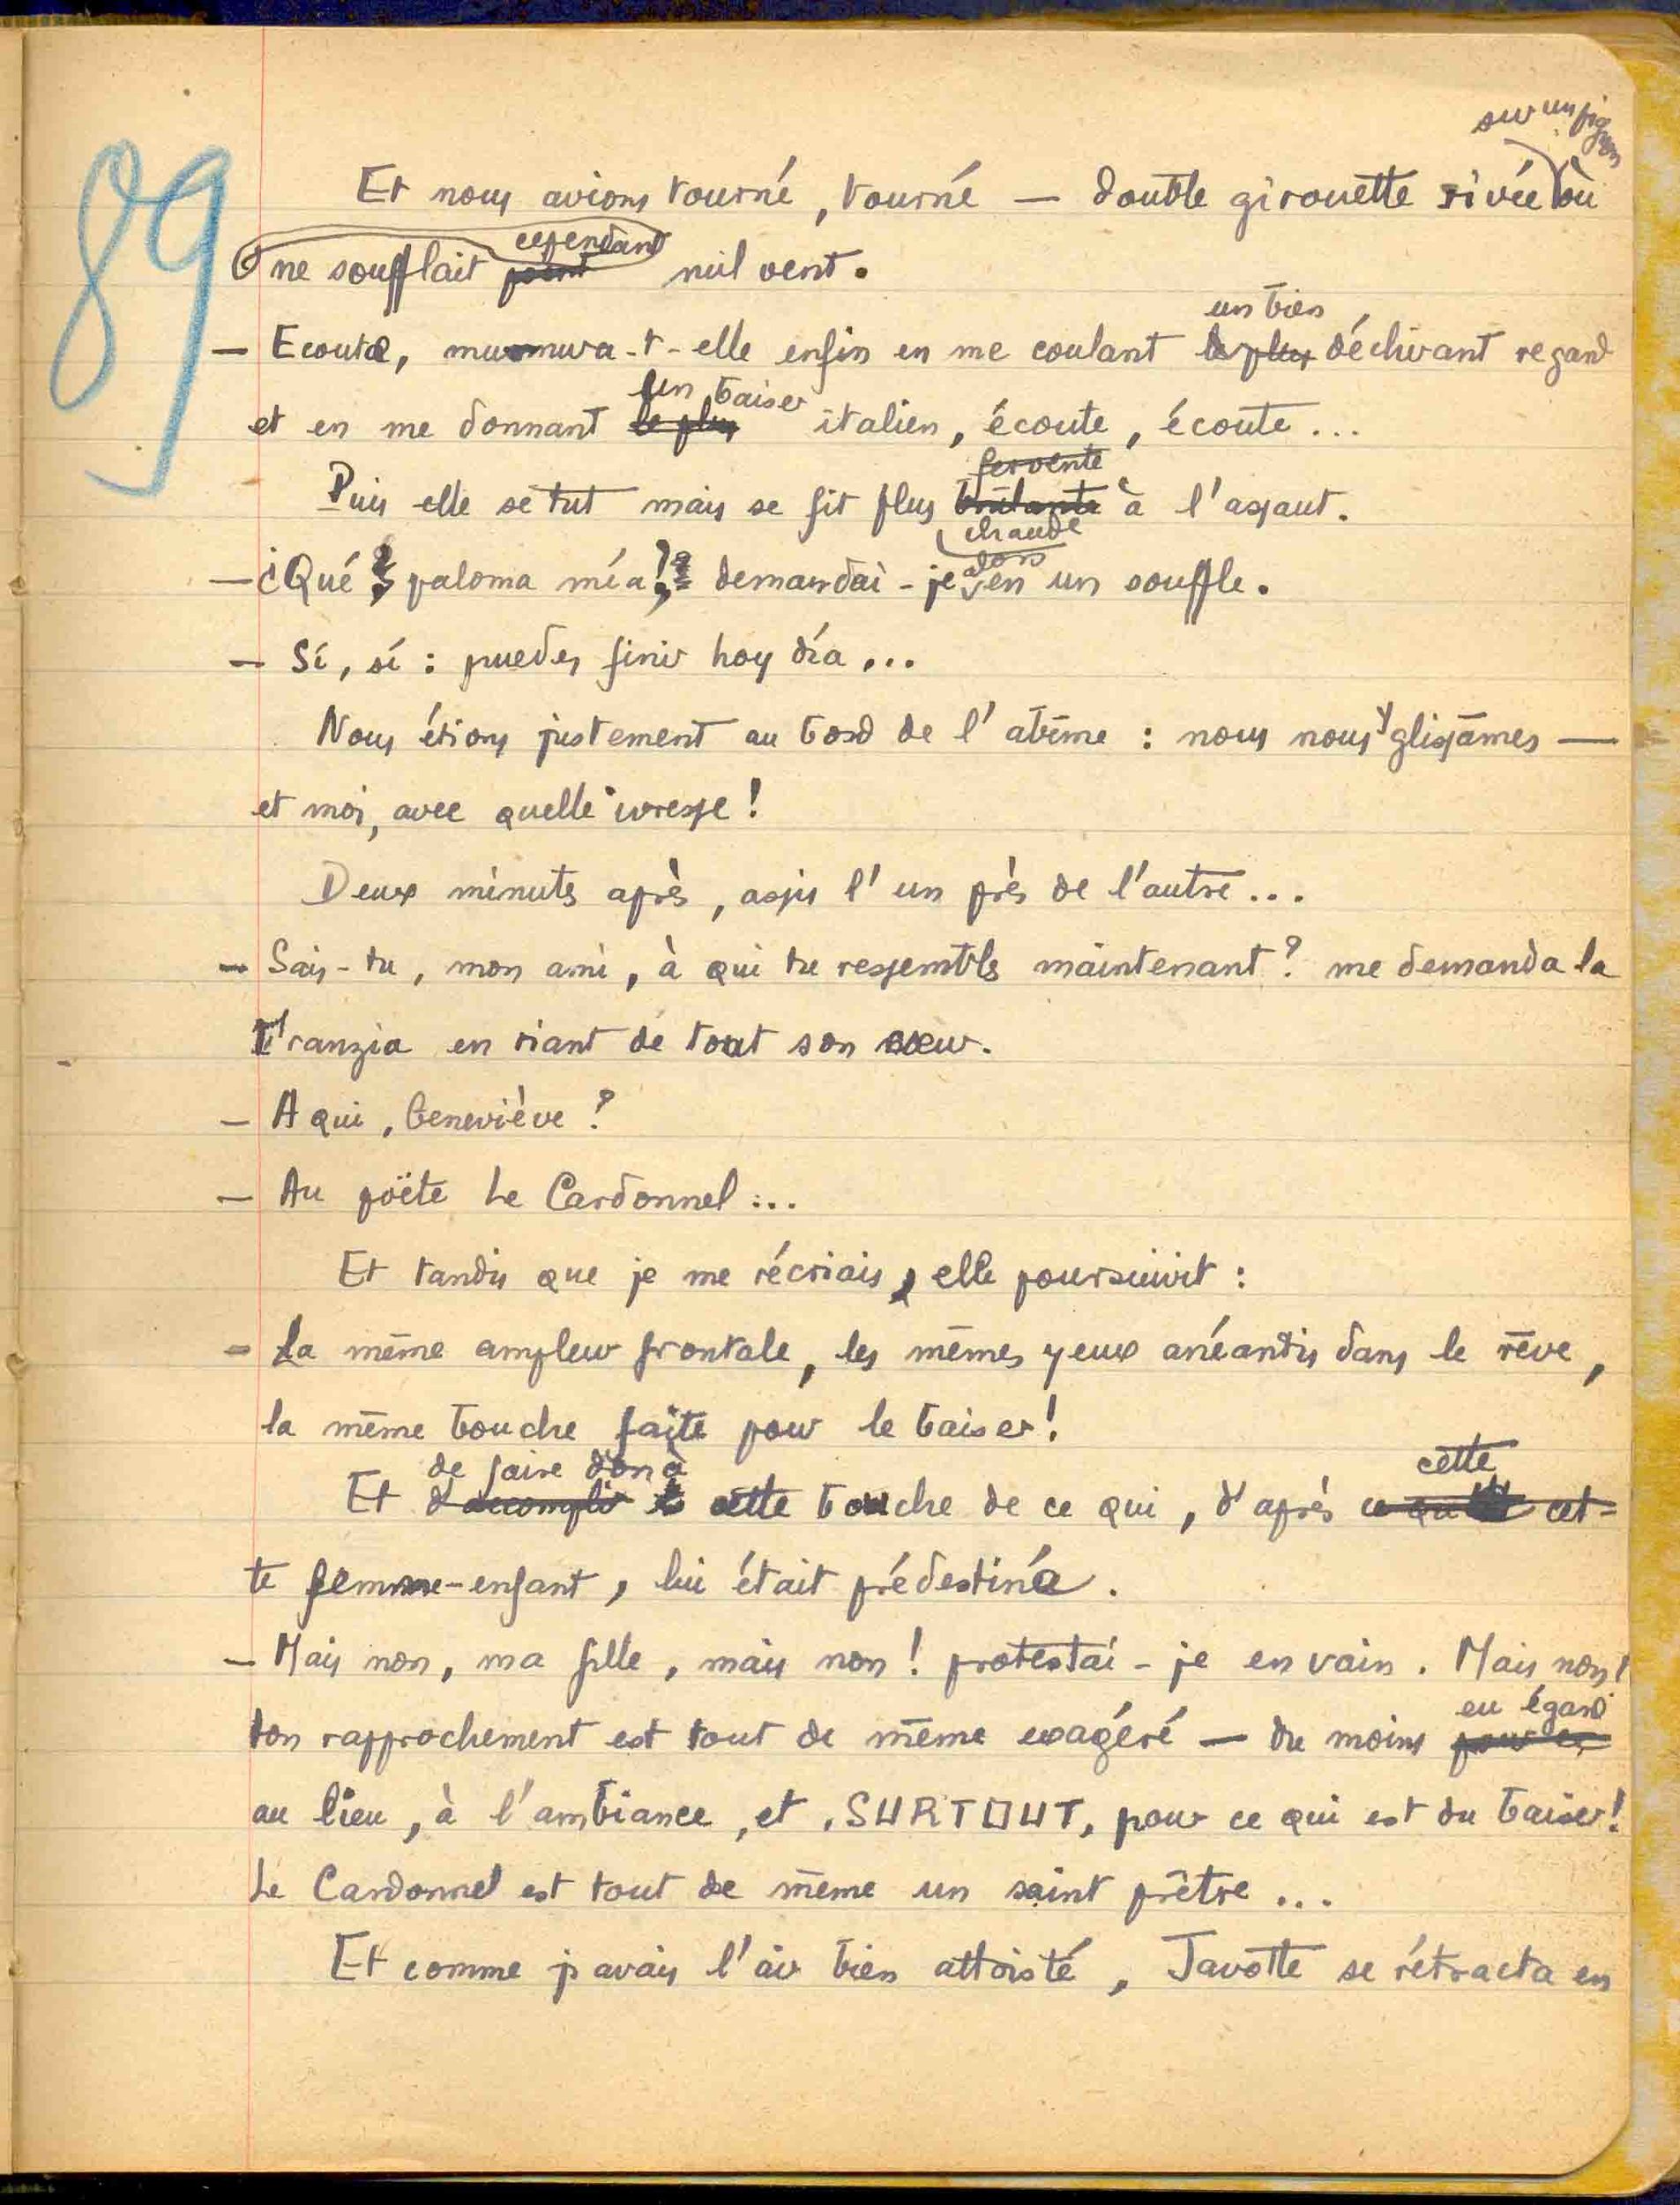 89
sur un pignon
Et nous avions tourné, tourné — double girouette rivée où
cependant
ne soufflait point nul vent.
un bien
— Ecoute, murmura-t-elle enfin en me coulant le plus déchirant regard
un baiser
et en me donnant le plus italien, écoute, écoute...
fervente
Puis elle se tut mais se fit plus brûlante à l'assaut.
chaude
alors
— ¿Qué, paloma mía? demandai-je en un souffle.
— Sí, sí : puedes finir hoy día...
Nous étions justement au bord de l'abîme : nous nous y glissâmes —
et moi, avec quelle ivresse !
Deux minutes après, assis l'un près de l'autre...
— Sais-tu, mon ami, à qui tu ressembles maintenant ? me demanda la
Franzia en riant de tout son cœur.
— A qui, Geneviève ?
— Au poëte Le Cardonnel...
Et tandis que je me récriais, elle poursuivit :
— La même ampleur frontale, les mêmes yeux anéantis dans le rêve,
la même bouche faite pour le baiser !
de faire don à cette
Et d'accomplir cette bouche de ce qui, d'après ce qu' cet-
te femme-enfant, lui était prédestiné.
— Mais non, ma fille, mais non ! protestai-je en vain. Mais non !
eu égard
ton rapprochement est tout de même exagéré — du moins pour ce
au lieu, à l'ambiance, et, SURTOUT, pour ce qui est du baiser !
Le Cardonnel est tout de même un saint prêtre...
Et comme j'avais l'air bien attristé, Javotte se rétracta en